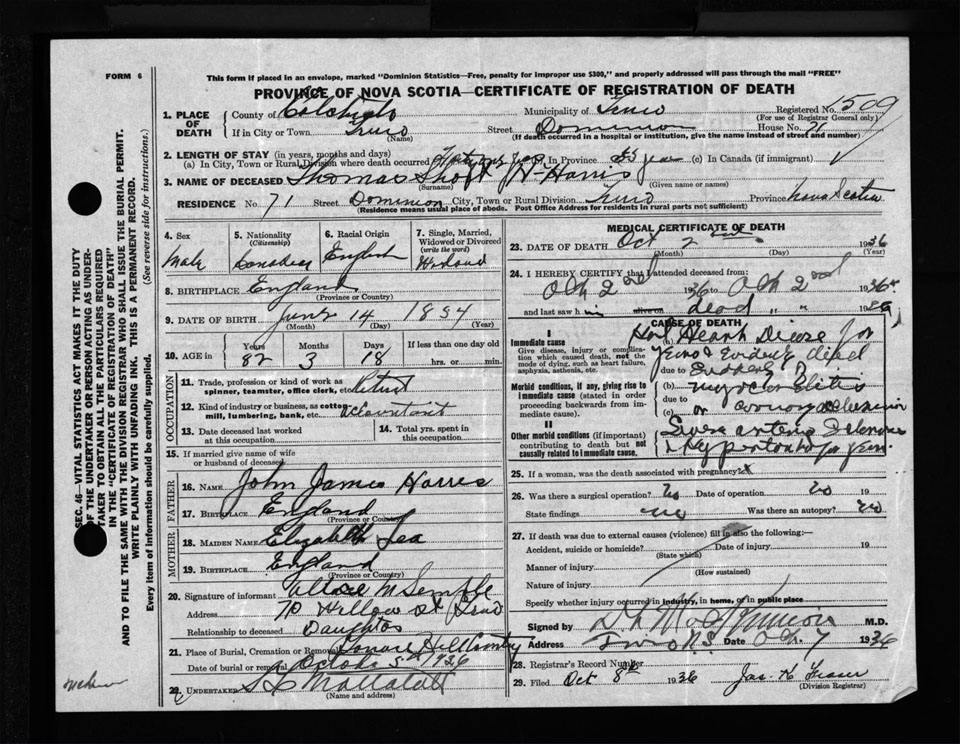 FORM 6
This form if placed in an envelope, marked "Dominion Statistics—Free, penalty for improper use $300," and properly addressed will pass through the mail "FREE"
PROVINCE OF NOVA SCOTIA—CERTIFICATE OF REGISTRATION OF DEATH
1. PLACE OF DEATH County of Colchester Municipality of Truro Registered No. 1509
(For use of Registrar General only)
If in City or Town Truro Street Dominion House No. 71
(Name) (If death occurred in a hospital or institution, give the name instead of street and number)
2. LENGTH OF STAY (in years, months and days)
(a) In City, Town or Rural Division where death occurred (b) In Province (c) In Canada (if immigrant)
3. NAME OF DECEASED Thomas Harris
(Surname) (Given name or names)
RESIDENCE No. 71 Street Dominion City, Town or Rural Division Truro Province Nova Scotia
(Residence means usual place of abode. Post Office Address for residents in rural parts not sufficient)
4. Sex Male
5. Nationality (Citizenship) Canadian
6. Racial Origin English
7. Single, Married, Widowed or Divorced (write the word) Widowed
8. BIRTHPLACE England
(Province or Country)
9. DATE OF BIRTH June 14 1854
(Month) (Day) (Year)
10. AGE in Years Months Days If less than one day old
82 3 18 hrs. or min.
OCCUPATION
11. Trade, profession or kind of work as spinner, teamster, office clerk, etc.
12. Kind of industry or business, as cotton mill, lumbering, bank, etc. Accountant
13. Date deceased last worked at this occupation
14. Total yrs. spent in this occupation
15. If married give name of wife or husband of deceased
FATHER
16. NAME John James Harris
17. BIRTHPLACE England
(Province or Country)
MOTHER
18. MAIDEN NAME Elizabeth Lea
19. BIRTHPLACE England
(Province or Country)
20. Signature of informant
Address Willow St
Relationship to deceased Daughter
21. Place of Burial, Cremation or Removal
Date of burial or removal October 5th 1936
22. UNDERTAKER
(Name and address)
MEDICAL CERTIFICATE OF DEATH
23. DATE OF DEATH Oct 2nd 1936
(Month) (Day) (Year)
24. I HEREBY CERTIFY that I attended deceased from
Oct 2nd 1936 to Oct 2nd 1936
and last saw him alive on dead
CAUSE OF DEATH
I
Immediate cause
Give disease, injury or complication which caused death, not the mode of dying, such as heart failure, asphyxia, asthenia, etc.
Had Heart Disease for
years & evidently died
due to suddenly
Morbid conditions, if any, giving rise to immediate cause (stated in order proceeding backwards from immediate cause).
(b)
due to or coronary
(c)
II
Other morbid conditions (if important) contributing to death but not causally related to immediate cause.
25. If a woman, was the death associated with pregnancy? x
26. Was there a surgical operation? no Date of operation no 19
State findings no Was there an autopsy? no
27. If death was due to external causes (violence) fill in also the following:
Accident, suicide or homicide? Date of injury 19
(State which)
Manner of injury
(How sustained)
Nature of injury
Specify whether injury occurred in industry, in home, or in public place
Signed by M.D.
Address Truro N.S. Date Oct. 7 1936
28. Registrar's Record Number
29. Filed Oct 8th 1936 Jas. H. Fraser
(Division Registrar)
SEC. 46—VITAL STATISTICS ACT MAKES IT THE DUTY
OF THE UNDERTAKER OR PERSON ACTING AS UNDER-
TAKER TO OBTAIN ALL THE PARTICULARS REQUIRED
IN THE "CERTIFICATE OF REGISTRATION OF DEATH"
AND TO FILE THE SAME WITH THE DIVISION REGISTRAR WHO SHALL ISSUE THE BURIAL PERMIT.
WRITE PLAINLY WITH UNFADING INK. THIS IS A PERMANENT RECORD.
Every item of information should be carefully supplied. (See reverse side for instructions.)